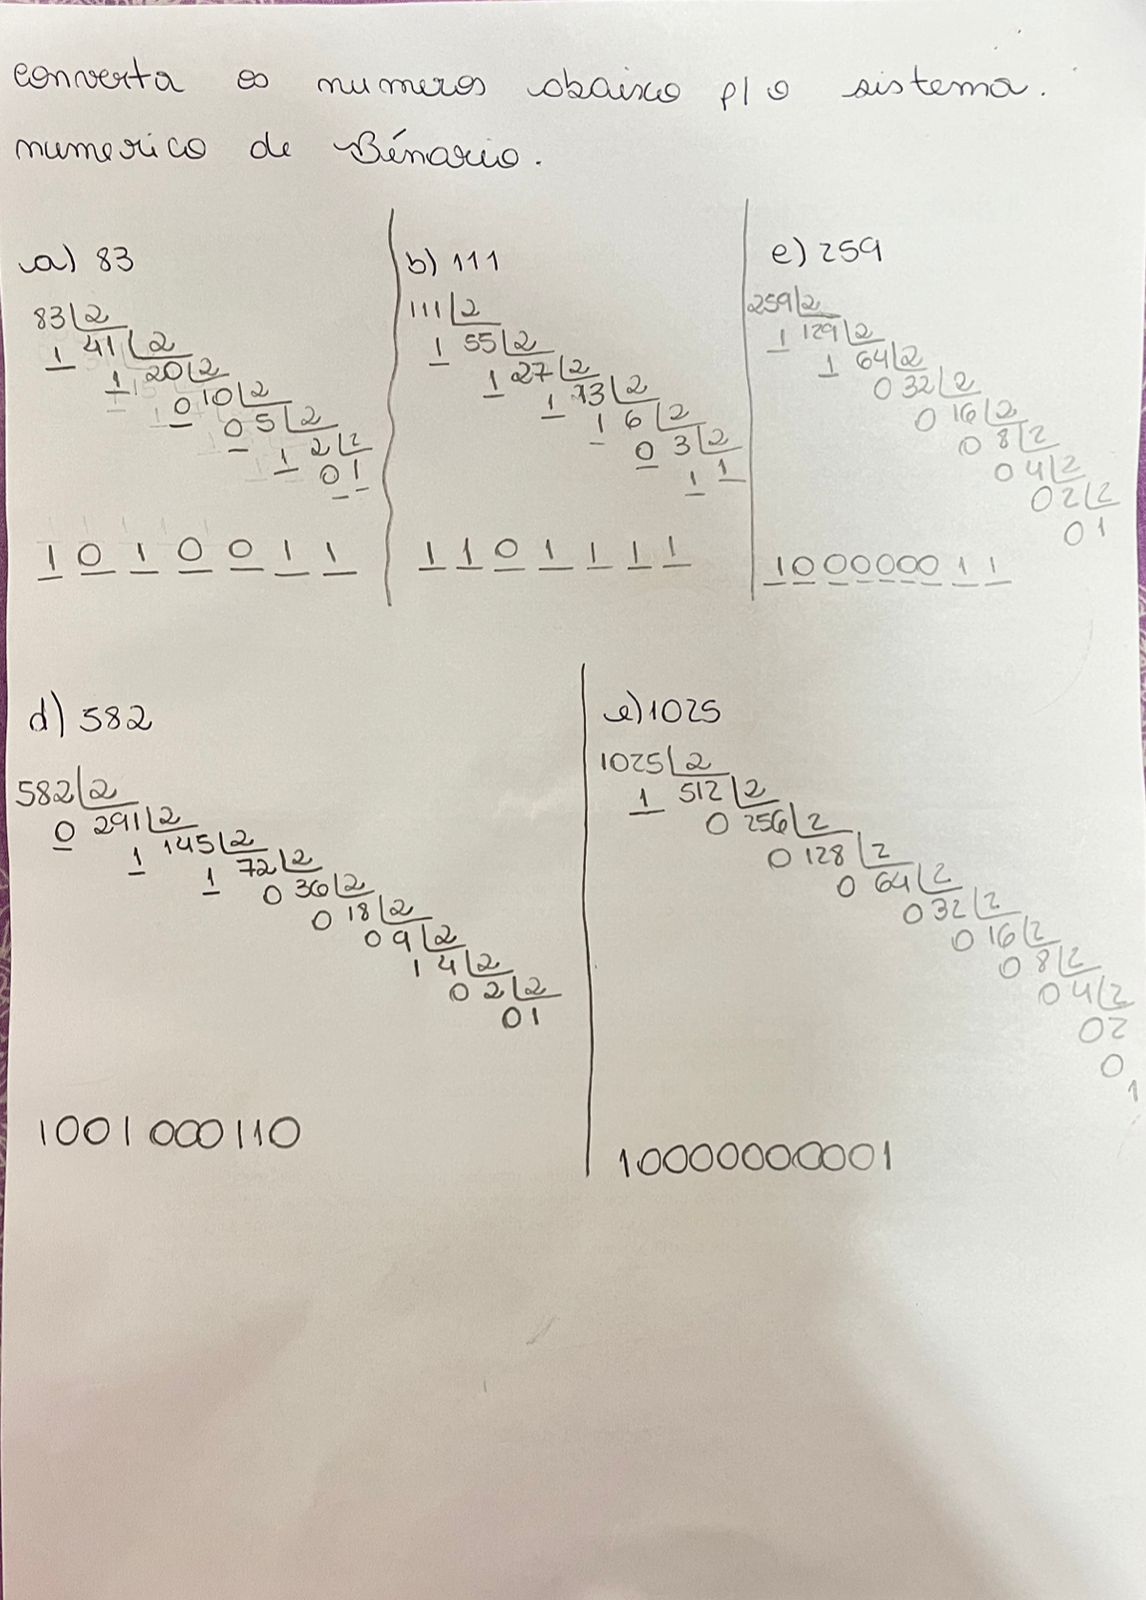 converta os numeros abaixo p/ o sistema.
numerico de Bínario.
a) 83
83 2
1 41 2
1 20 2
0 10 2
0 5 2
1 2 2
0 1
1 0 1 0 0 1 1
b) 111
111 2
1 55 2
1 27 2
1 13 2
1 6 2
0 3 2
1 1
1 1 0 1 1 1 1
c) 259
259 2
1 129 2
1 64 2
0 32 2
0 16 2
0 8 2
0 4 2
0 2 2
0 1
100000011
d) 582
582 2
0 291 2
1 145 2
1 72 2
0 36 2
0 18 2
0 9 2
1 4 2
0 2 2
0 1
1001000110
e) 1025
1025 2
1 512 2
0 256 2
0 128 2
0 64 2
0 32 2
0 16 2
0 8 2
0 4 2
0 2
0
1
10000000001